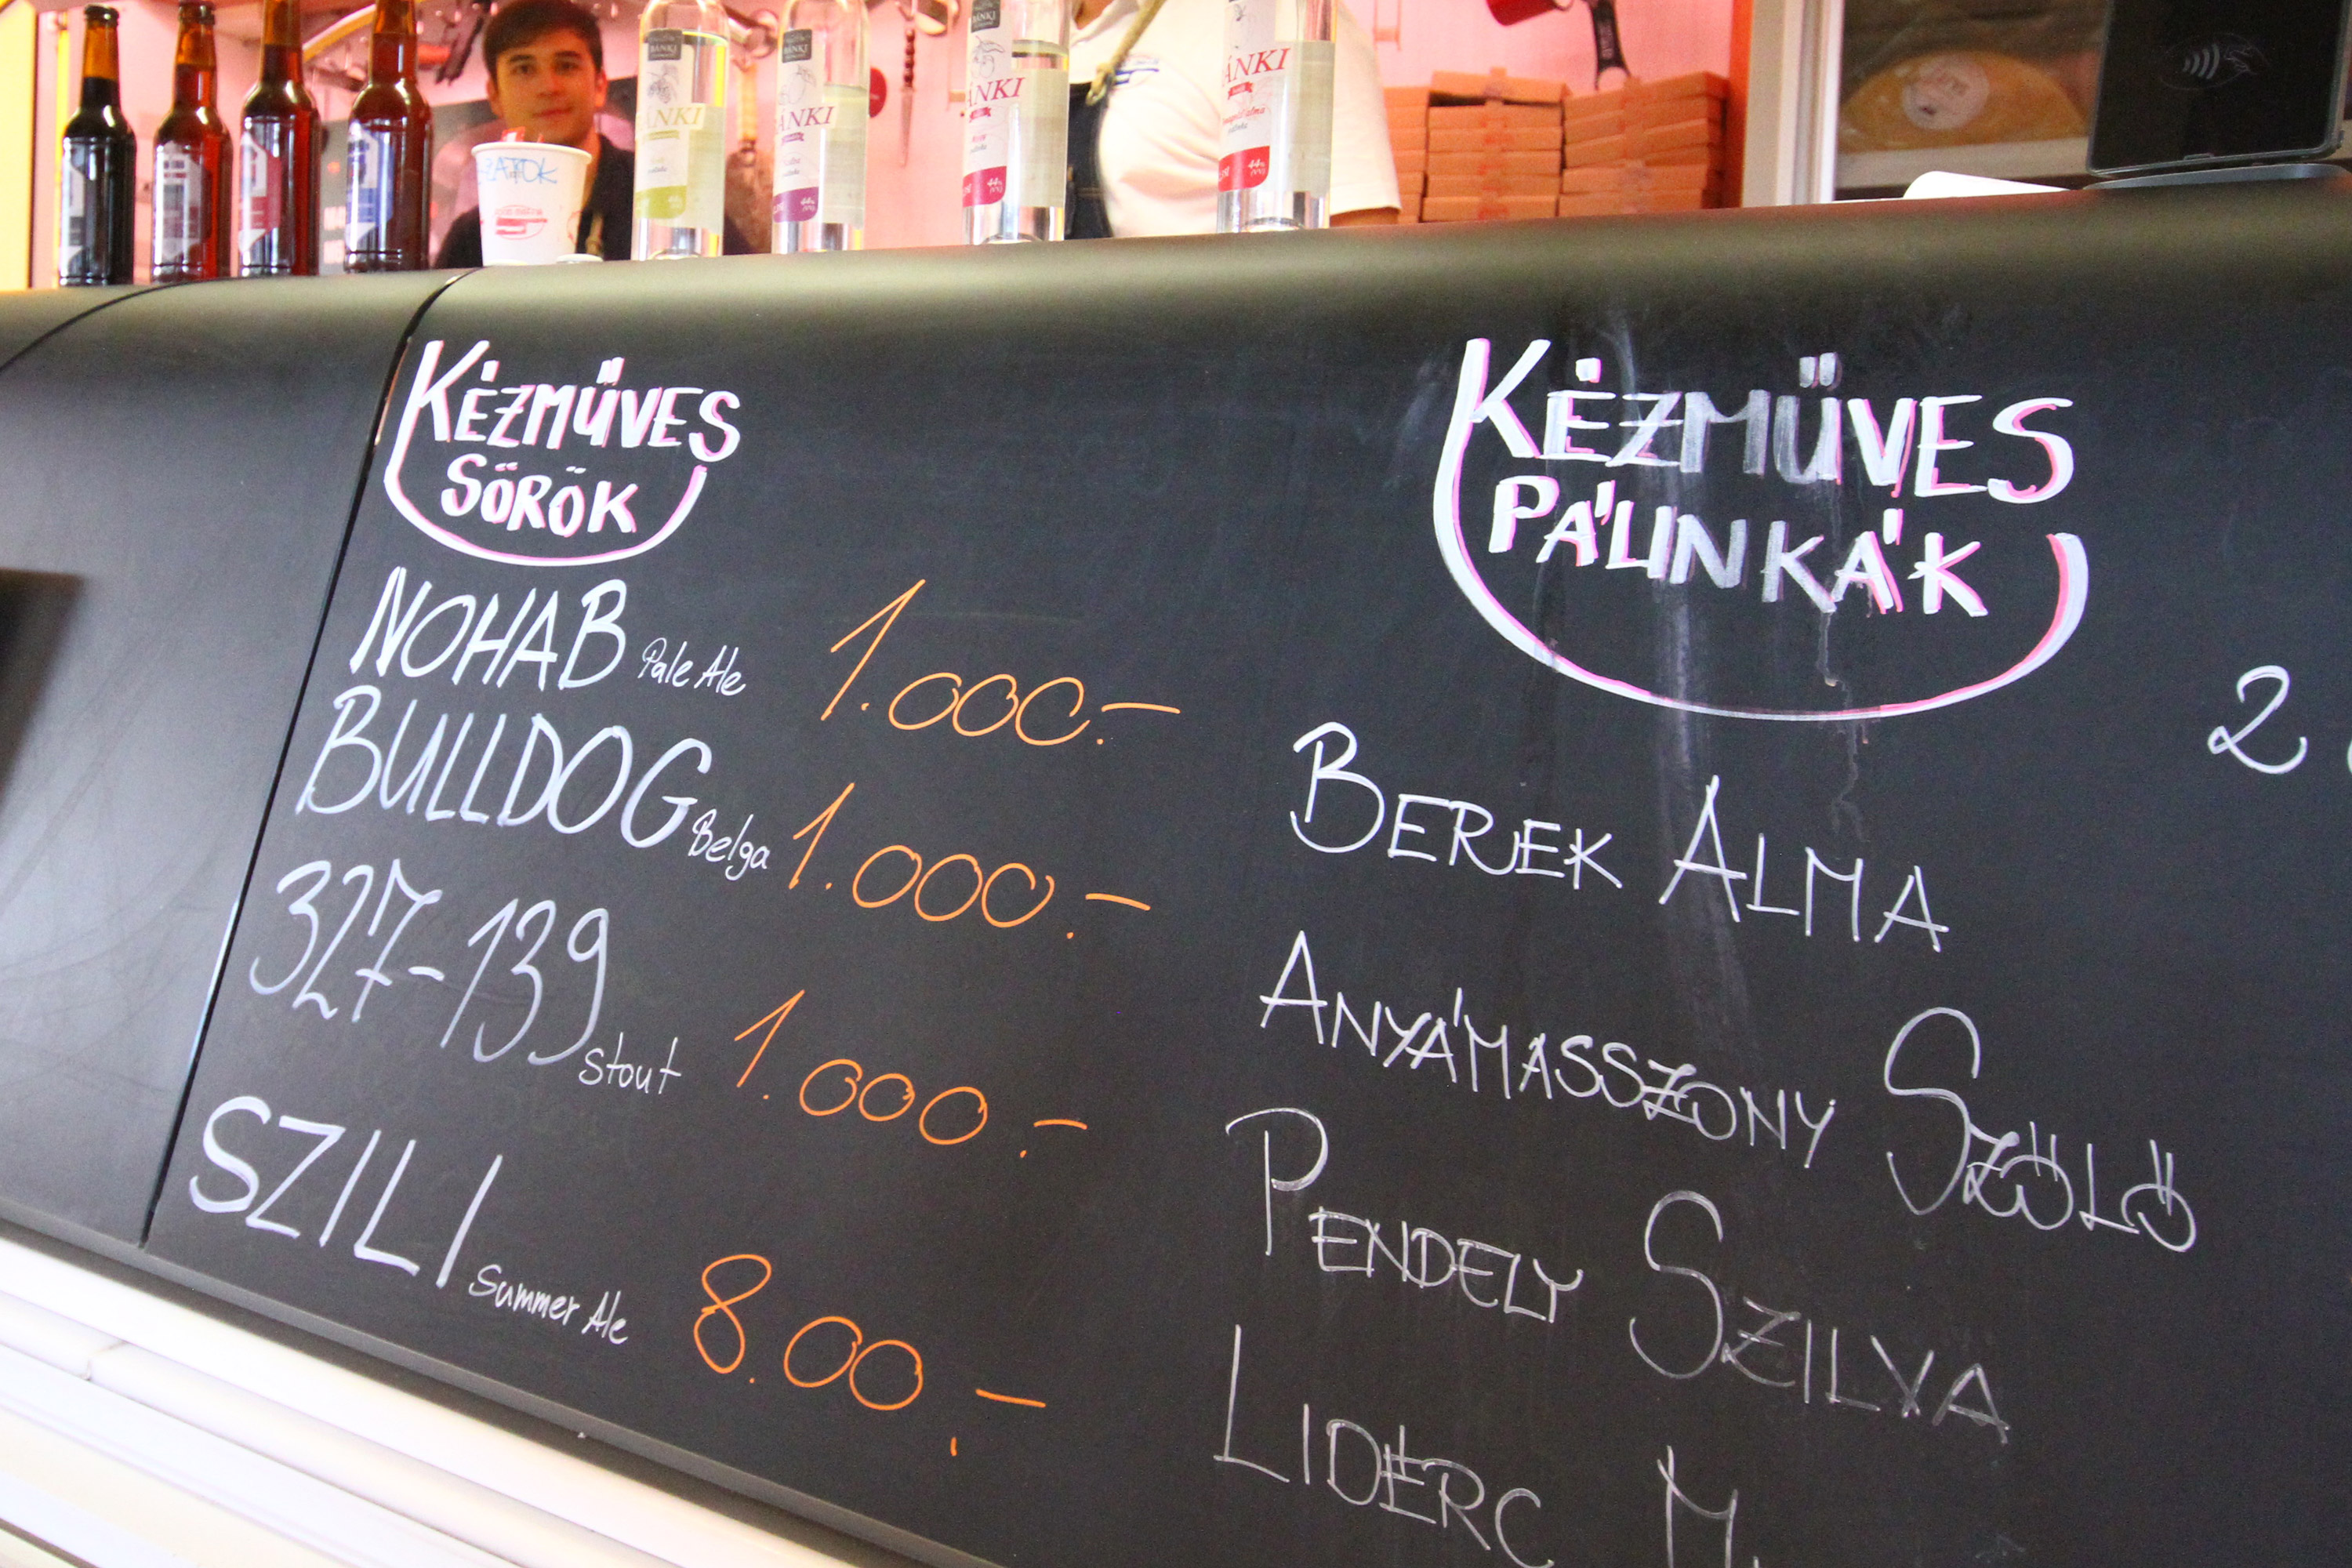 BÁNKI
ÁNKI
ÁNKI
44%
BÁNKI
ÁNKI
44%
ÁNKI
44%
KÉZMŰVES
SÖRÖK
NOHAB Pale Ale 1.000.-
BULLDOG Belga 1.000.-
327-139 stout 1.000.-
SZILI Summer Ale 8.00,-
KÉZMŰVES
PÁLINKÁK
2
BEREK ALMA
ANYÁMASSZONY SZŐLŐ
PENDELY SZILVA
LIDÉRC M